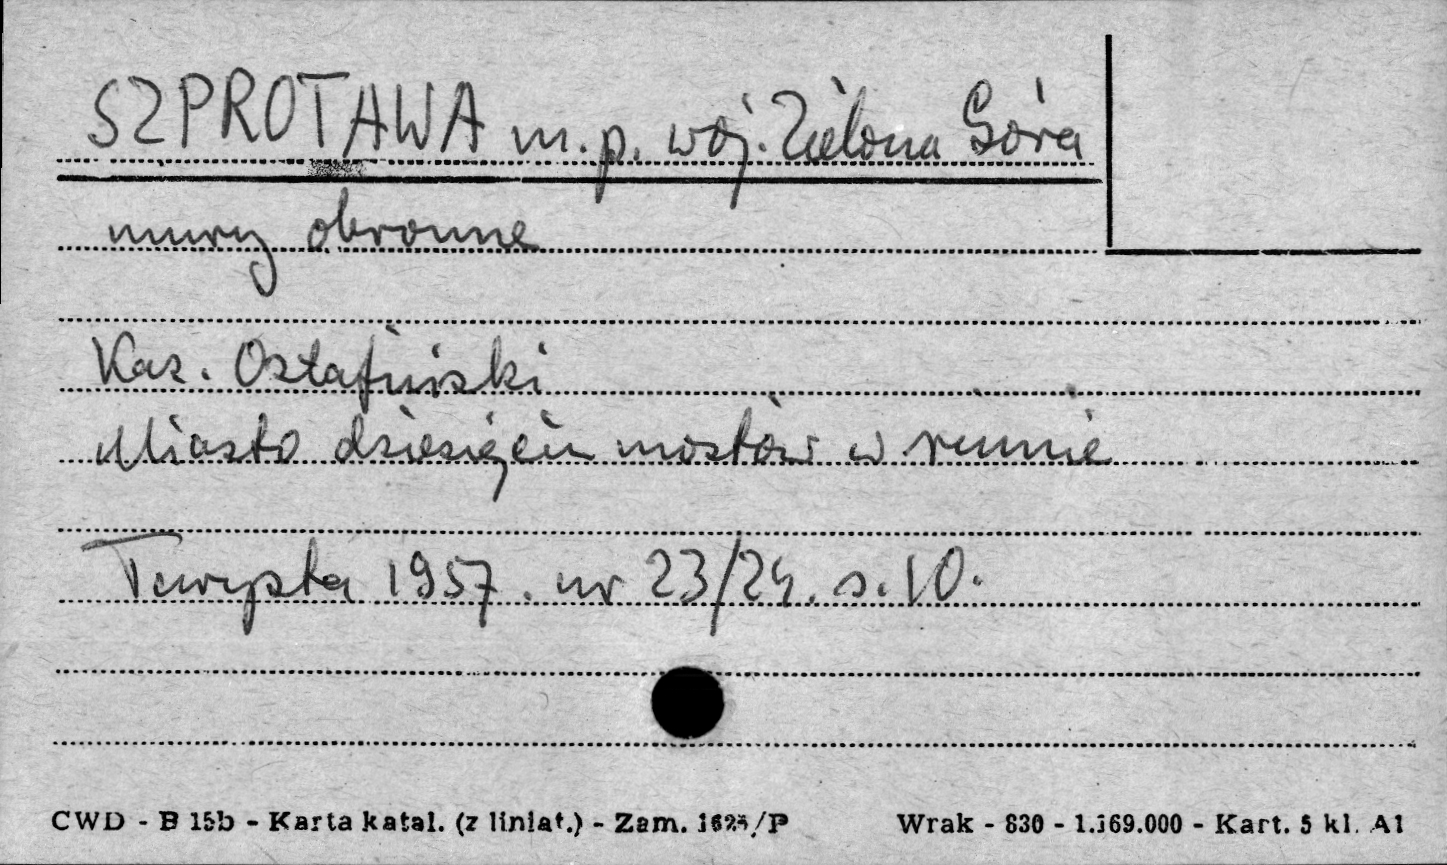 SZPROTAWA m. p. woj. Zielona Góra
mury obronne
Kaz. Ostafiński
Miasto dziesięciu mostów w ruinie
Turysta 1957. nr 23/24. s. 10.
CWD - B 15b - Karta katal. (z liniat.) - Zam. /P
Wrak - 830 - 1.169.000 - Kart. 5 kl. A1